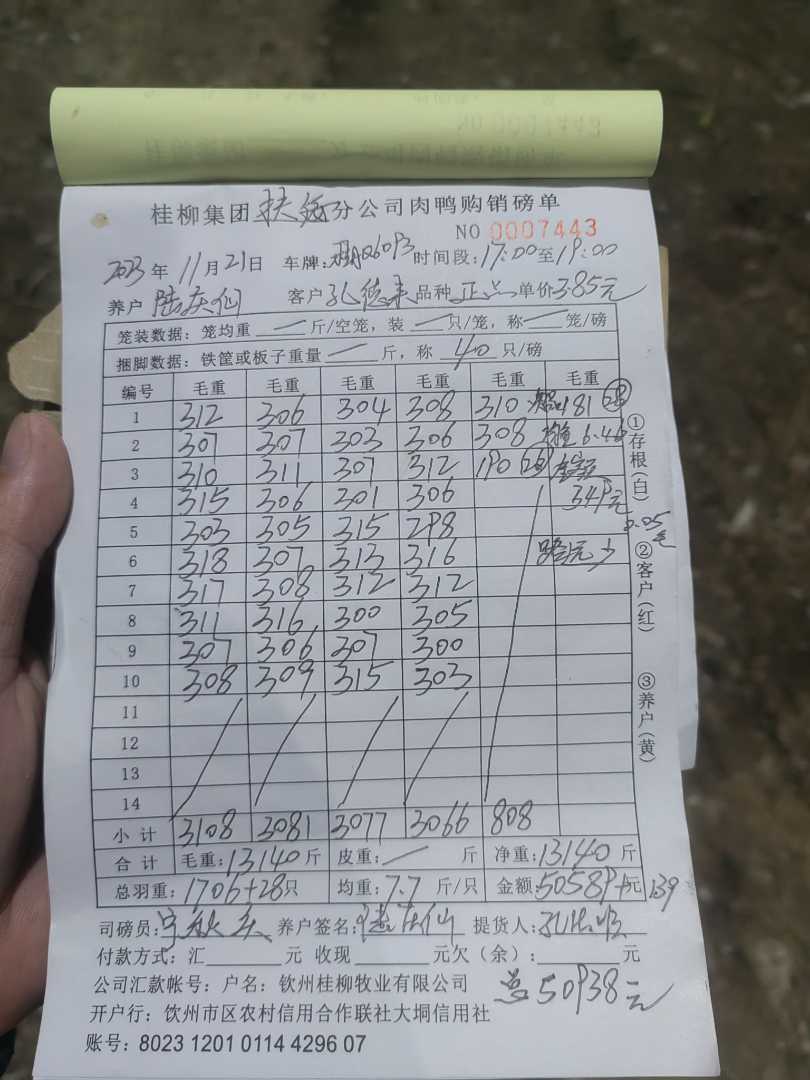 NO 0007443
桂柳集团扶绥分公司肉鸭购销磅单
NO 0007443
2023年11月21日 车牌: 时间段:17:00至19:00
养户 陆庆仙 客户 孔德来 品种 正品 单价3.85元
笼装数据:笼均重 — 斤/空笼,装 — 只/笼,称 — 笼/磅
捆脚数据:铁筐或板子重量 — 斤,称 40 只/磅
编号 毛重 毛重 毛重 毛重 毛重 毛重
1 312 306 304 308 310 181 28
2 307 307 303 306 308 6.46
3 310 311 307 312 190 26
4 315 306 301 306 349元
5 303 305 315 298 0.05
6 318 307 313 316
7 317 308 312 312
8 311 316 300 305
9 307 306 207 300
10 308 309 315 303
11
12
13
14
小计 3108 3081 3077 3066 808
合计 毛重:13140斤 皮重: — 斤 净重:13140斤
总羽重:1706+28只 均重:7.7斤/只 金额:50589+元 139
司磅员: 养户签名:陆庆仙 提货人:
付款方式:汇 元 收现 元欠(余): 元
公司汇款帐号:户名:钦州桂柳牧业有限公司
总50938元
开户行:饮州市区农村信用合作联社大垌信用社
账号:8023 1201 0114 4296 07
①存根(白)
②客户(红)
③养户(黄)